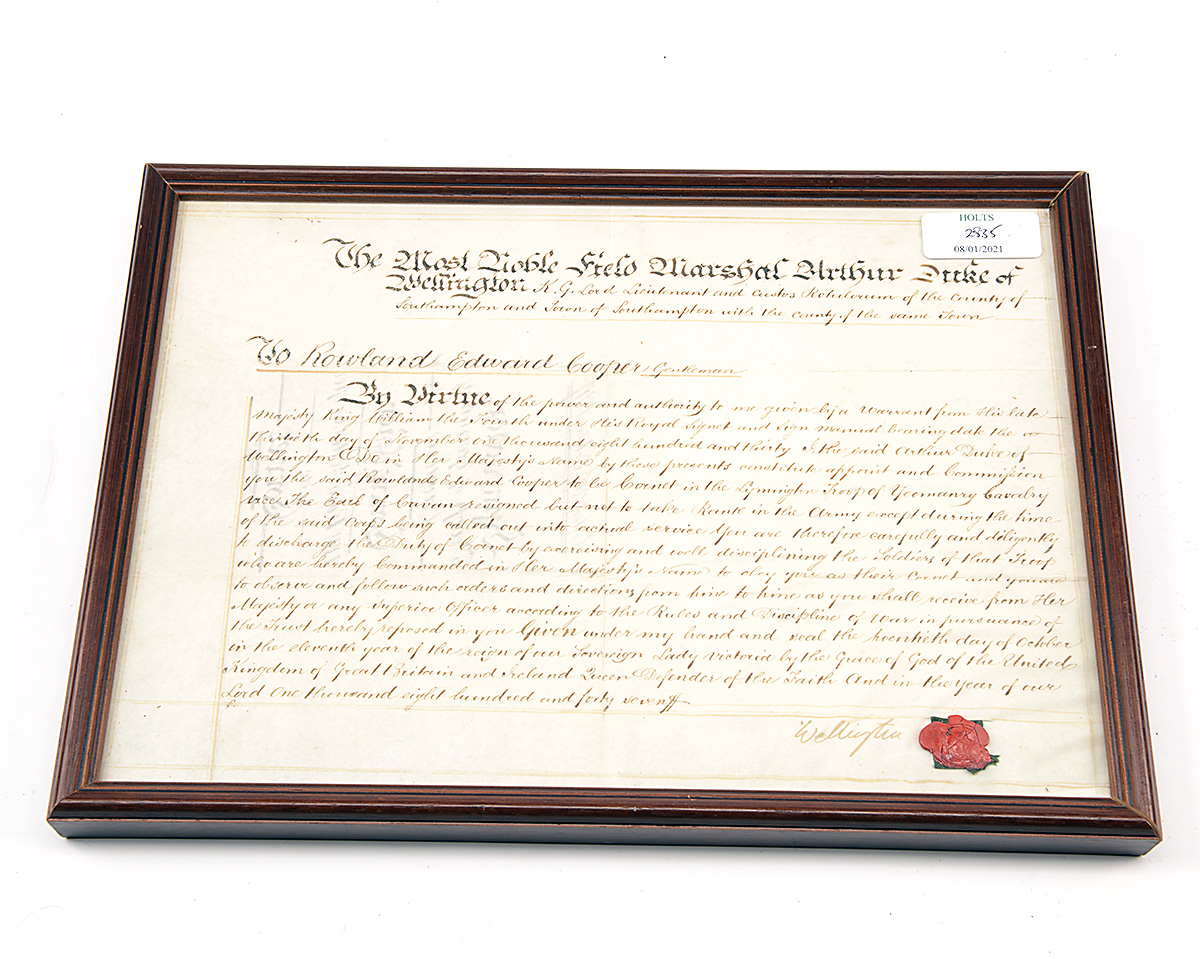 HOLTS
2835
08/01/2021
The Most Noble Field Marshal Arthur Duke of
Wellington K.G. Lord Lieutenant and Custos Rotulorum of the County of
Southampton and Town of Southampton with the County of the same Town
To Rowland Edward Cooper Gentleman
By Virtue of the power and authority to me given by a Warrant from His late
Majesty King William the Fourth under His Royal Signet and Sign Manual bearing date the
thirtieth day of November one thousand eight hundred and thirty I the said Arthur Duke of
Wellington K.G. Do in Her Majesty's Name by these presents constitute appoint and Commission
you the said Rowland Edward Cooper to be Cornet in the Lymington Troop of Yeomanry Cavalry
vice The Earl of Cavan resigned but not to take Rank in the Army except during the time
of the said Corps being called out into actual service You are therefore carefully and diligently
to discharge the Duty of Cornet by exercising and well disciplining the Soldiers of that Troop
who are hereby Commanded in Her Majesty's Name to obey you as their Cornet and you are
to observe and follow such orders and directions from time to time as you shall receive from Her
Majesty or any Superior Officer according to the Rules and Discipline of War in pursuance of
the Trust hereby reposed in you Given under my hand and seal the twentieth day of October
in the eleventh year of the reign of our Sovereign Lady Victoria by the Grace of God of the United
Kingdom of Great Britain and Ireland Queen Defender of the Faith And in the Year of our
Lord One thousand eight hundred and forty seven
Wellington